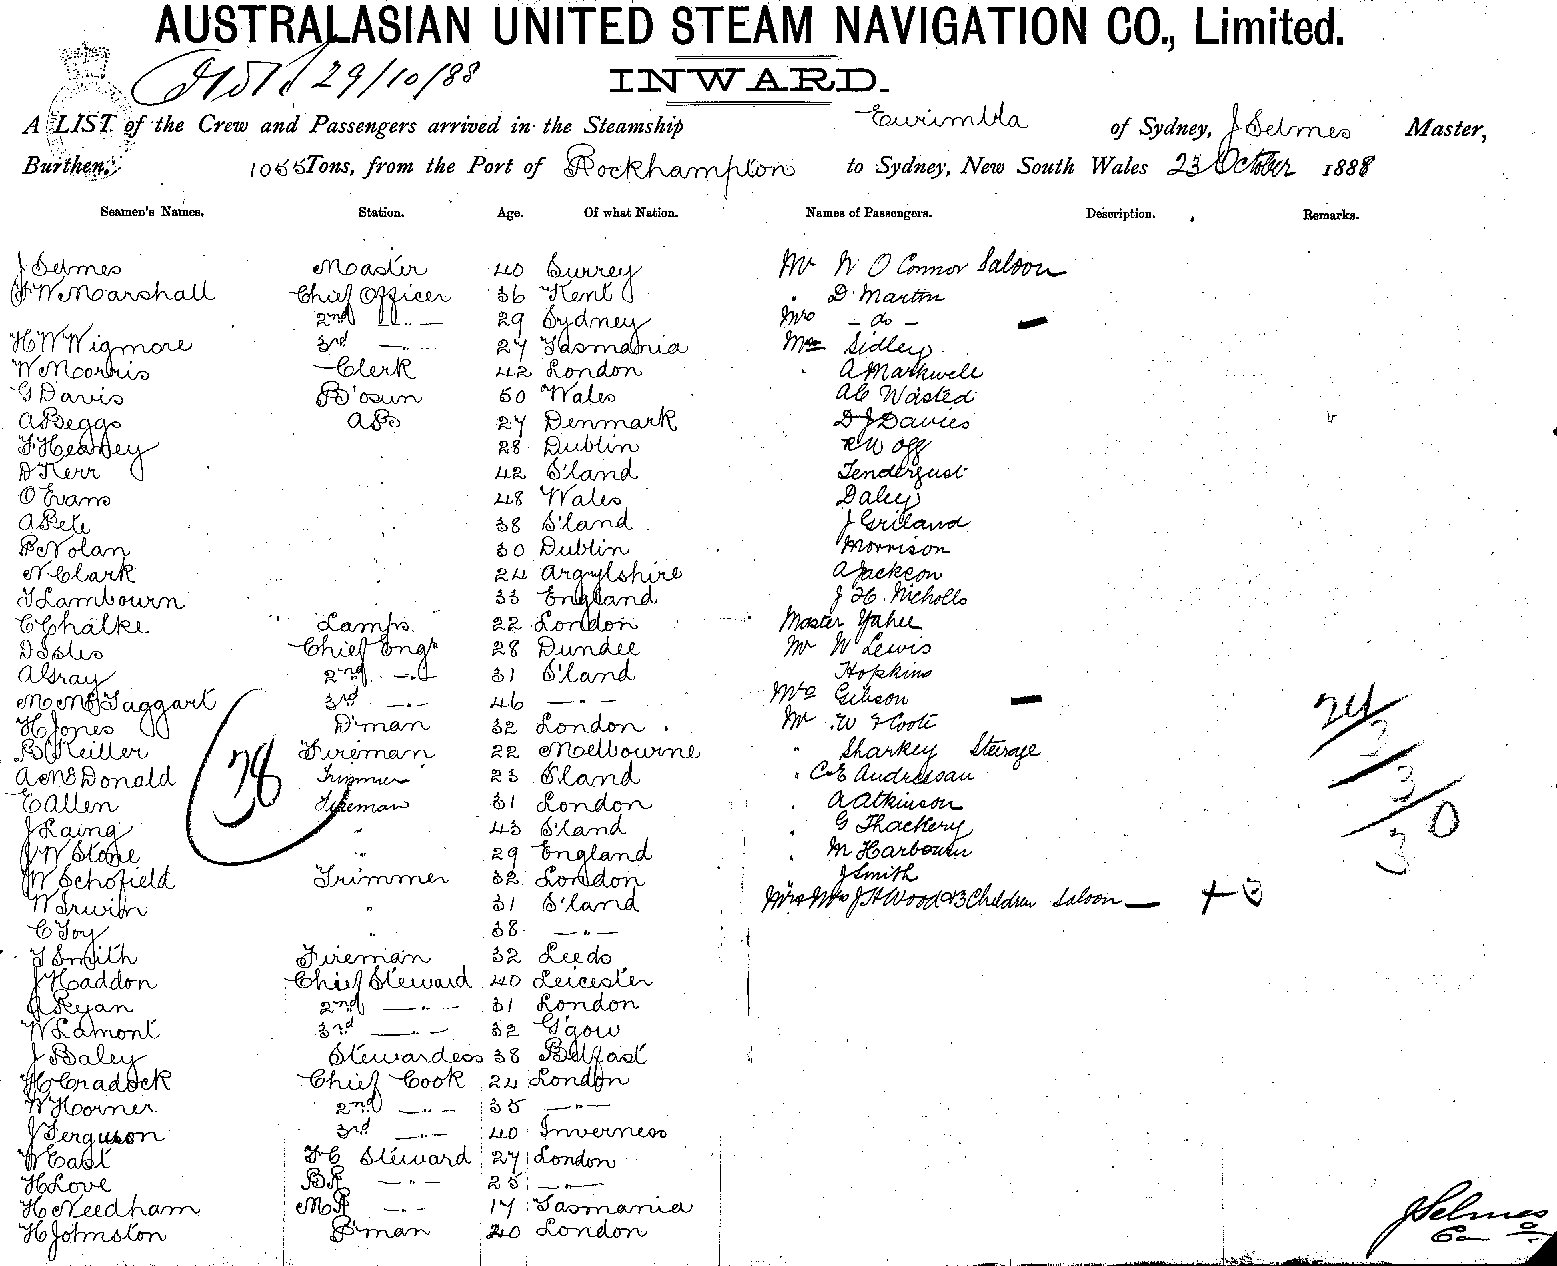 AUSTRALASIAN UNITED STEAM NAVIGATION CO., Limited.
29/10/88
INWARD.
A LIST of the Crew and Passengers arrived in the Steamship Eurimbla of Sydney, J Selmes Master,
Burthen, 1055 Tons, from the Port of Rockhampton to Sydney, New South Wales 23 October 1888
Seamen's Names. Station. Age. Of what Nation. Names of Passengers. Description. Remarks.
J Selmes Master 40 Surrey Mr W O Connor Saloon
J W Marshall Chief Officer 36 Kent " D Martin
2nd " 29 Sydney Mrs - do -
H W Wigmore 3rd —"— 27 Tasmania Sidley
W Morris Clerk 42 London " A Markwell
G Davis B'osun 50 Wales
A Beggs AB 27 Denmark D J Davies
F Heaney 28 Dublin R W Ogg
D Kerr 42 S'land Tendergust
O Evans 48 Wales Daley
A Pete 38 S'land J Griland
P Nolan 30 Dublin Morrison
N Clark 24 Argylshire A Jackson
T Lambourn 33 England J H. Nicholls
C Chalke Lamps 22 London Master Yahee
D Isles Chief Engr 28 Dundee Mr W Lewis
A Gray 2nd —"— 31 S'land Hopkins
M McTaggart 3rd —"— 46 —"— Mrs Gibson
H Jones D'man 32 London Mr W F Coote
B Keiller Fireman 22 Melbourne " Sharkey Steerage
A McDonald Trimmer 23 S'land " C E Andressau
E Allen Fireman 31 London " A Atkinson
J Laing " 43 S'land " G Thackery
J W Stone " 29 England " M Harbourn
J W Schofield Trimmer 32 London J Smith
W Irwin " 31 S'land Mrs J H Wood & 3 Children Saloon
C Toy " 38 —"—
T Smith Fireman 32 Leeds
J Haddon Chief Steward 40 Leicester
A Ryan 2nd —"— 31 London
W Lamont 3rd —"— 32 G'gow
J Baley Stewardess 38 Belfast
H Cradock Chief Cook 24 London
W Horner 2nd —"— 35 —"—
J Ferguson 3rd —"— 40 Inverness
W East F C Steward 27 London
H Love —"— 25 —"—
H Needham —"— 17 Tasmania
H Johnston P'man 20 London
38
24
2
3
30
J Selmes